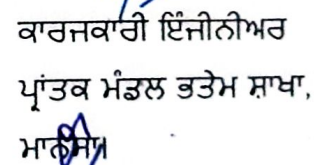 ਕਾਰਜਕਾਰੀ ਇੰਜੀਨੀਅਰ
ਪ੍ਰਾਂਤਕ ਮੰਡਲ ਭਤੇਮ ਸ਼ਾਖਾ,
ਮਾਨਸਾ।